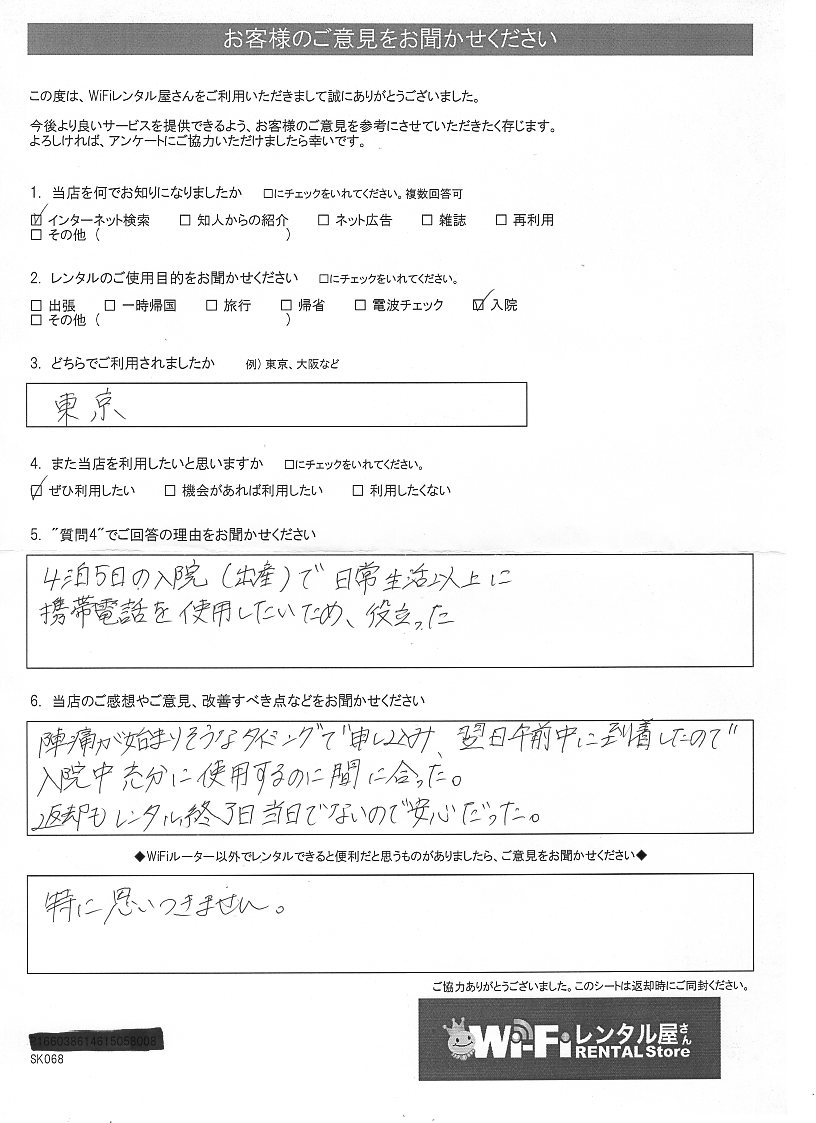 お客様のご意見をお聞かせください
この度は、WiFiレンタル屋さんをご利用いただきまして誠にありがとうございました。
今後より良いサービスを提供できるよう、お客様のご意見を参考にさせていただきたく存じます。
よろしければ、アンケートにご協力いただけましたら幸いです。
1. 当店を何でお知りになりましたか □にチェックをいれてください。複数回答可
☑ インターネット検索 □ 知人からの紹介 □ ネット広告 □ 雑誌 □ 再利用
□ その他 ( )
2. レンタルのご使用目的をお聞かせください □にチェックをいれてください。
□ 出張 □ 一時帰国 □ 旅行 □ 帰省 □ 電波チェック ☑ 入院
□ その他 ( )
3. どちらでご利用されましたか 例) 東京、大阪など
東京
4. また当店を利用したいと思いますか □にチェックをいれてください。
☑ ぜひ利用したい □ 機会があれば利用したい □ 利用したくない
5. "質問4"でご回答の理由をお聞かせください
4泊5日の入院(出産)で日常生活以上に
携帯電話を使用したいため、役立った
6. 当店のご感想やご意見、改善すべき点などをお聞かせください
陣痛が始まりそうなタイミングで申し込み、翌日午前中に到着したので
入院中充分に使用するのに間に合った。
返却もレンタル終了日当日でないので安心だった。
◆WiFiルーター以外でレンタルできると便利だと思うものがありましたら、ご意見をお聞かせください◆
特に思いつきません。
ご協力ありがとうございました。このシートは返却時にご同封ください。
SK068
Wi-Fiレンタル屋さん
RENTAL Store